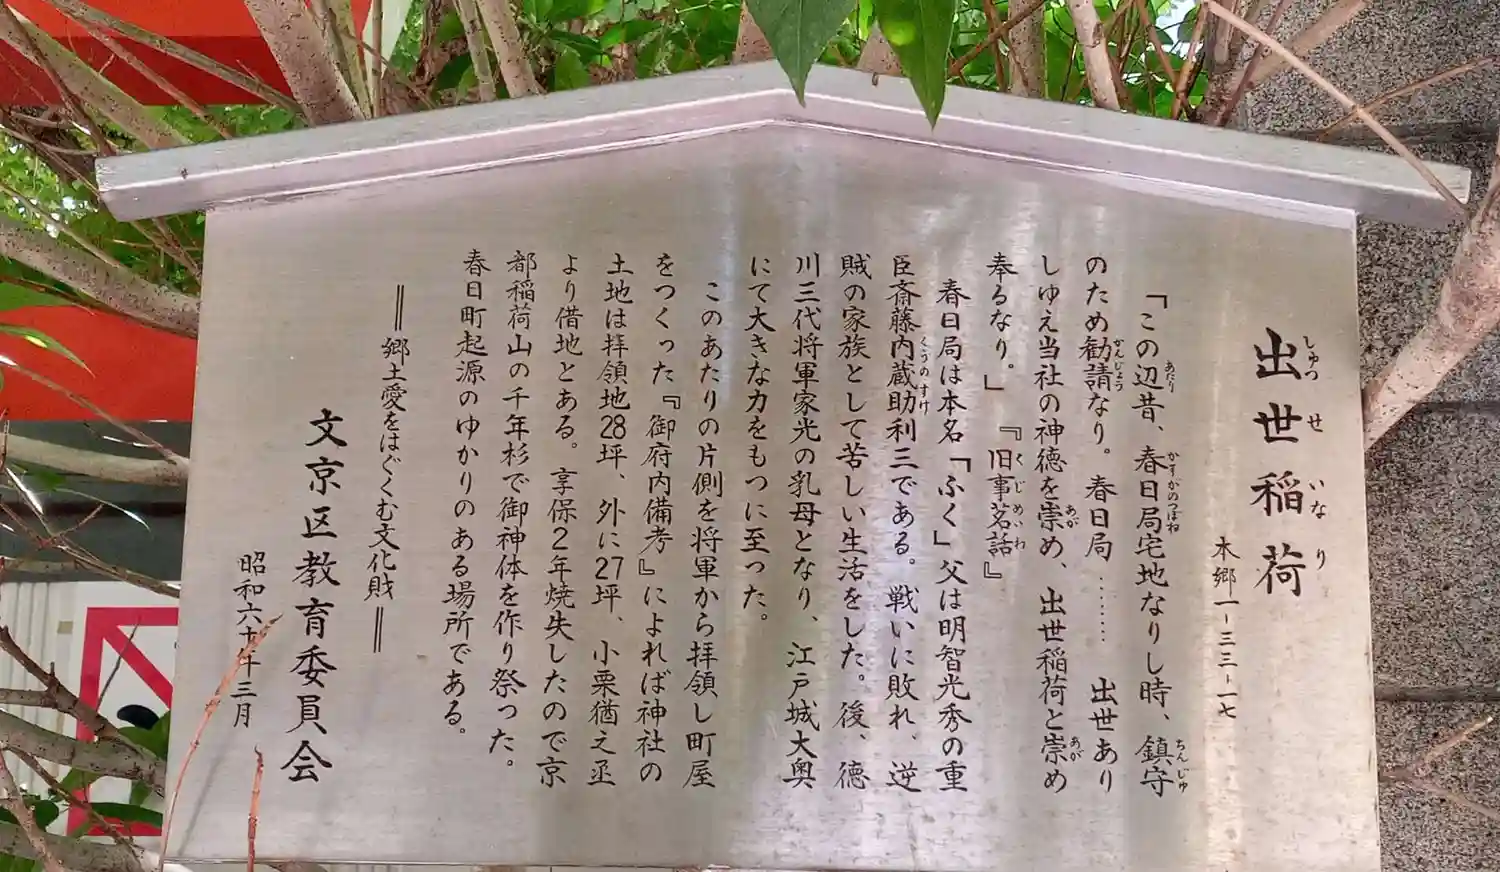 出世稲荷
しゅつせいなり
本郷一ー三三ー一七
「この辺昔、春日局宅地なりし時、鎮守
あたり かすがのつぼね ちんじゅ
のため勧請なり。春日局……出世あり
かんじょう
しゆえ当社の神徳を崇め、出世稲荷と崇め
あが あが
奉るなり。」『旧事茗話』
くじめいわ
春日局は本名「ふく」父は明智光秀の重
臣斎藤内蔵助利三である。戦いに敗れ、逆
くらのすけ
賊の家族として苦しい生活をした。後、徳
川三代将軍家光の乳母となり、江戸城大奥
にて大きな力をもつに至った。
このあたりの片側を将軍から拝領し町屋
をつくった『御府内備考』によれば神社の
土地は拝領地28坪、外に27坪、小栗猶之丞
より借地とある。享保2年焼失したので京
都稲荷山の千年杉で御神体を作り祭った。
春日町起源のゆかりのある場所である。
＝郷土愛をはぐくむ文化財＝
文京区教育委員会
昭和六十年三月